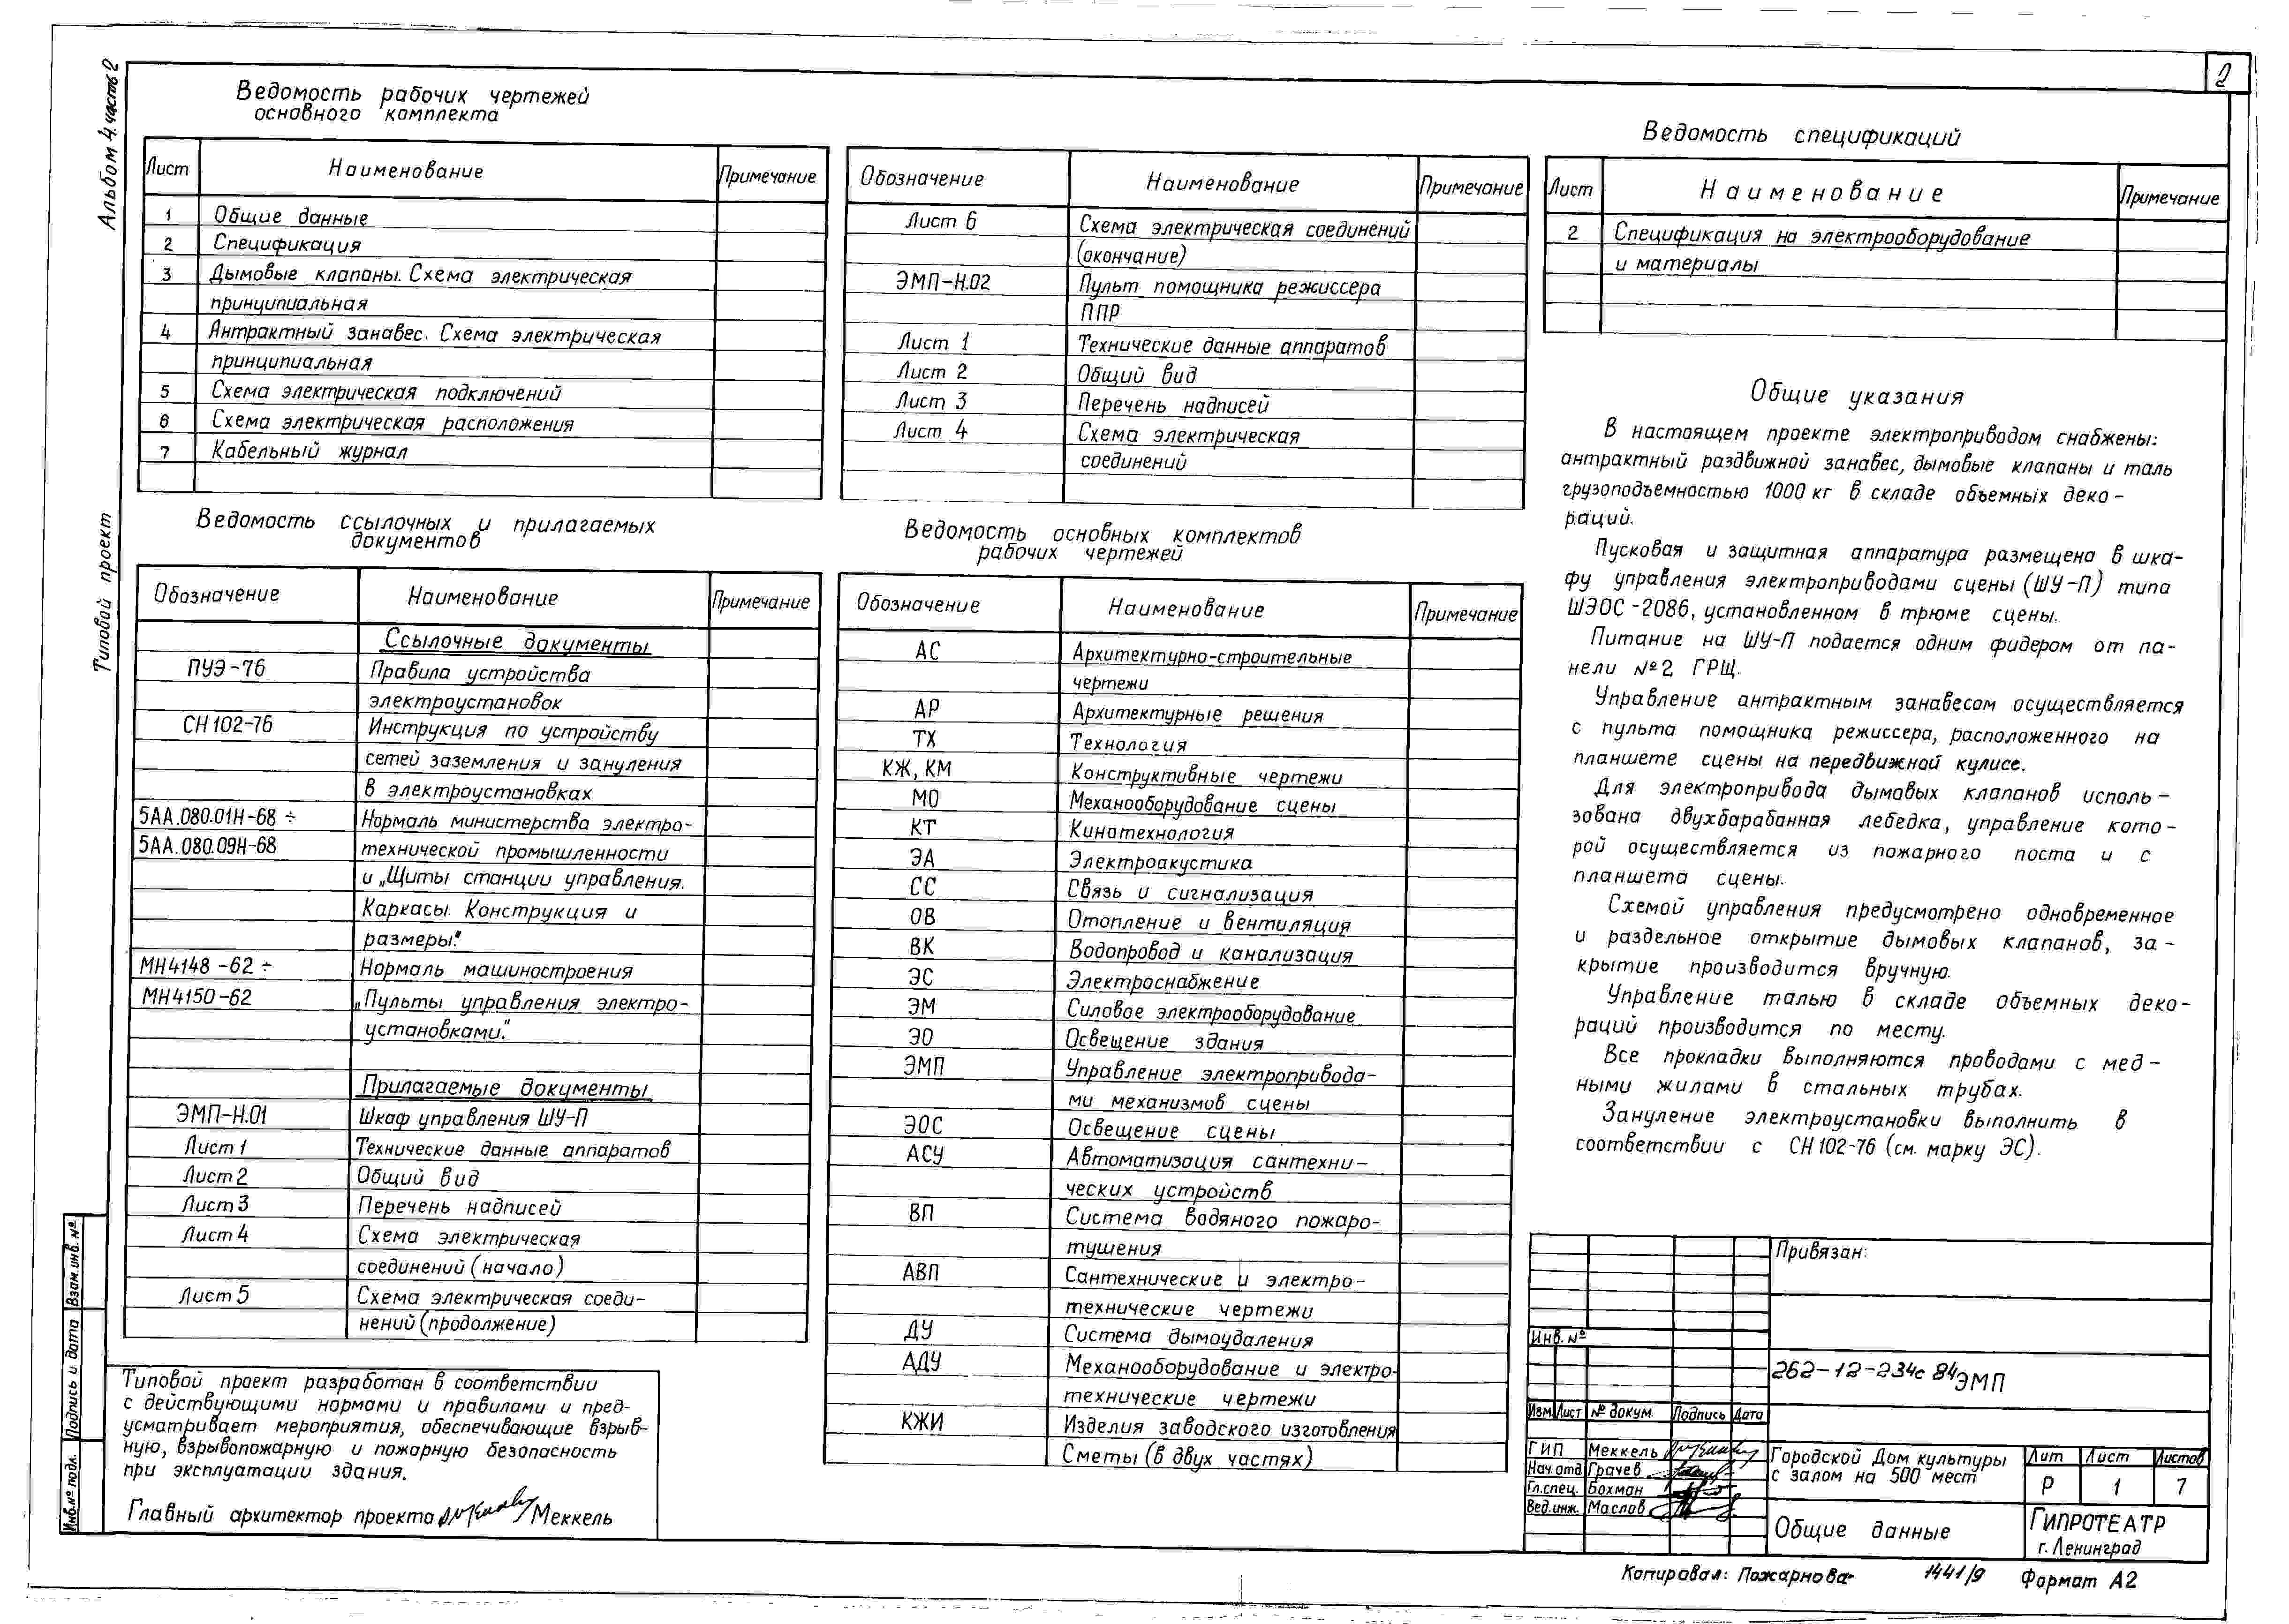 2
Альбом 4. часть 2
Типовой проект
Ведомость рабочих чертежей
основного комплекта
Лист Наименование Примечание
1 Общие данные
2 Спецификация
3 Дымовые клапаны. Схема электрическая
принципиальная
4 Антрактный занавес. Схема электрическая
принципиальная
5 Схема электрическая подключений
6 Схема электрическая расположения
7 Кабельный журнал
Ведомость ссылочных и прилагаемых
документов
Обозначение Наименование Примечание
Ссылочные документы
ПУЭ-76 Правила устройства
электроустановок
СН 102-76 Инструкция по устройству
сетей заземления и зануления
в электроустановках
5АА.080.01Н-68 ÷ Нормаль министерства электро-
5АА.080.09Н-68 технической промышленности
и „Щиты станции управления.
Каркасы. Конструкция и
размеры."
МН4148-62 ÷ Нормаль машиностроения
МН4150-62 „Пульты управления электро-
установками."
Прилагаемые документы
ЭМП-Н.01 Шкаф управления ШУ-П
Лист 1 Технические данные аппаратов
Лист 2 Общий вид
Лист 3 Перечень надписей
Лист 4 Схема электрическая
соединений (начало)
Лист 5 Схема электрическая соеди-
нений (продолжение)
Обозначение Наименование Примечание
Лист 6 Схема электрическая соединений
(окончание)
ЭМП-Н.02 Пульт помощника режиссера
ППР
Лист 1 Технические данные аппаратов
Лист 2 Общий вид
Лист 3 Перечень надписей
Лист 4 Схема электрическая
соединений
Ведомость основных комплектов
рабочих чертежей
Обозначение Наименование Примечание
АС Архитектурно-строительные
чертежи
АР Архитектурные решения
ТХ Технология
КЖ, КМ Конструктивные чертежи
МО Механооборудование сцены
КТ Кинотехнология
ЭА Электроакустика
СС Связь и сигнализация
ОВ Отопление и вентиляция
ВК Водопровод и канализация
ЭС Электроснабжение
ЭМ Силовое электрооборудование
ЭО Освещение здания
ЭМП Управление электропривода-
ми механизмов сцены
ЭОС Освещение сцены
АСУ Автоматизация сантехни-
ческих устройств
ВП Система водяного пожаро-
тушения
АВП Сантехнические и электро-
технические чертежи
ДУ Система дымоудаления
АДУ Механооборудование и электро-
технические чертежи
КЖИ Изделия заводского изготовления
Сметы (в двух частях)
Ведомость спецификаций
Лист Наименование Примечание
2 Спецификация на электрооборудование
и материалы
Общие указания
В настоящем проекте электроприводом снабжены:
антрактный раздвижной занавес, дымовые клапаны и таль
грузоподъемностью 1000 кг в складе объемных деко-
раций.
Пусковая и защитная аппаратура размещена в шка-
фу управления электроприводами сцены (ШУ-П) типа
ШЭОС-2086, установленном в трюме сцены.
Питание на ШУ-П подается одним фидером от па-
нели №2 ГРЩ.
Управление антрактным занавесом осуществляется
с пульта помощника режиссера, расположенного на
планшете сцены на передвижной кулисе.
Для электропривода дымовых клапанов исполь-
зована двухбарабанная лебедка, управление кото-
рой осуществляется из пожарного поста и с
планшета сцены.
Схемой управления предусмотрено одновременное
и раздельное открытие дымовых клапанов, за-
крытие производится вручную.
Управление талью в складе объемных деко-
раций производится по месту.
Все прокладки выполняются проводами с мед-
ными жилами в стальных трубах.
Зануление электроустановки выполнить в
соответствии с СН 102-76 (см. марку ЭС).
Типовой проект разработан в соответствии
с действующими нормами и правилами и пред-
усматривает мероприятия, обеспечивающие взрыв-
ную, взрывопожарную и пожарную безопасность
при эксплуатации здания.
Главный архитектор проекта Меккель
Взам. инв. №
Подпись и дата
Инв. № подл.
Привязан:
Инв. №
262-12-234с 84 ЭМП
Изм. Лист № докум. Подпись Дата
ГИП Меккель
Нач. отд. Грачев
Гл. спец. Бохман
Вед. инж. Маслов
Городской Дом культуры
с залом на 500 мест
Лит Лист Листов
Р 1 7
Общие данные
ГИПРОТЕАТР
г. Ленинград
Копировал: Пожарнова 1441/9 Формат А2